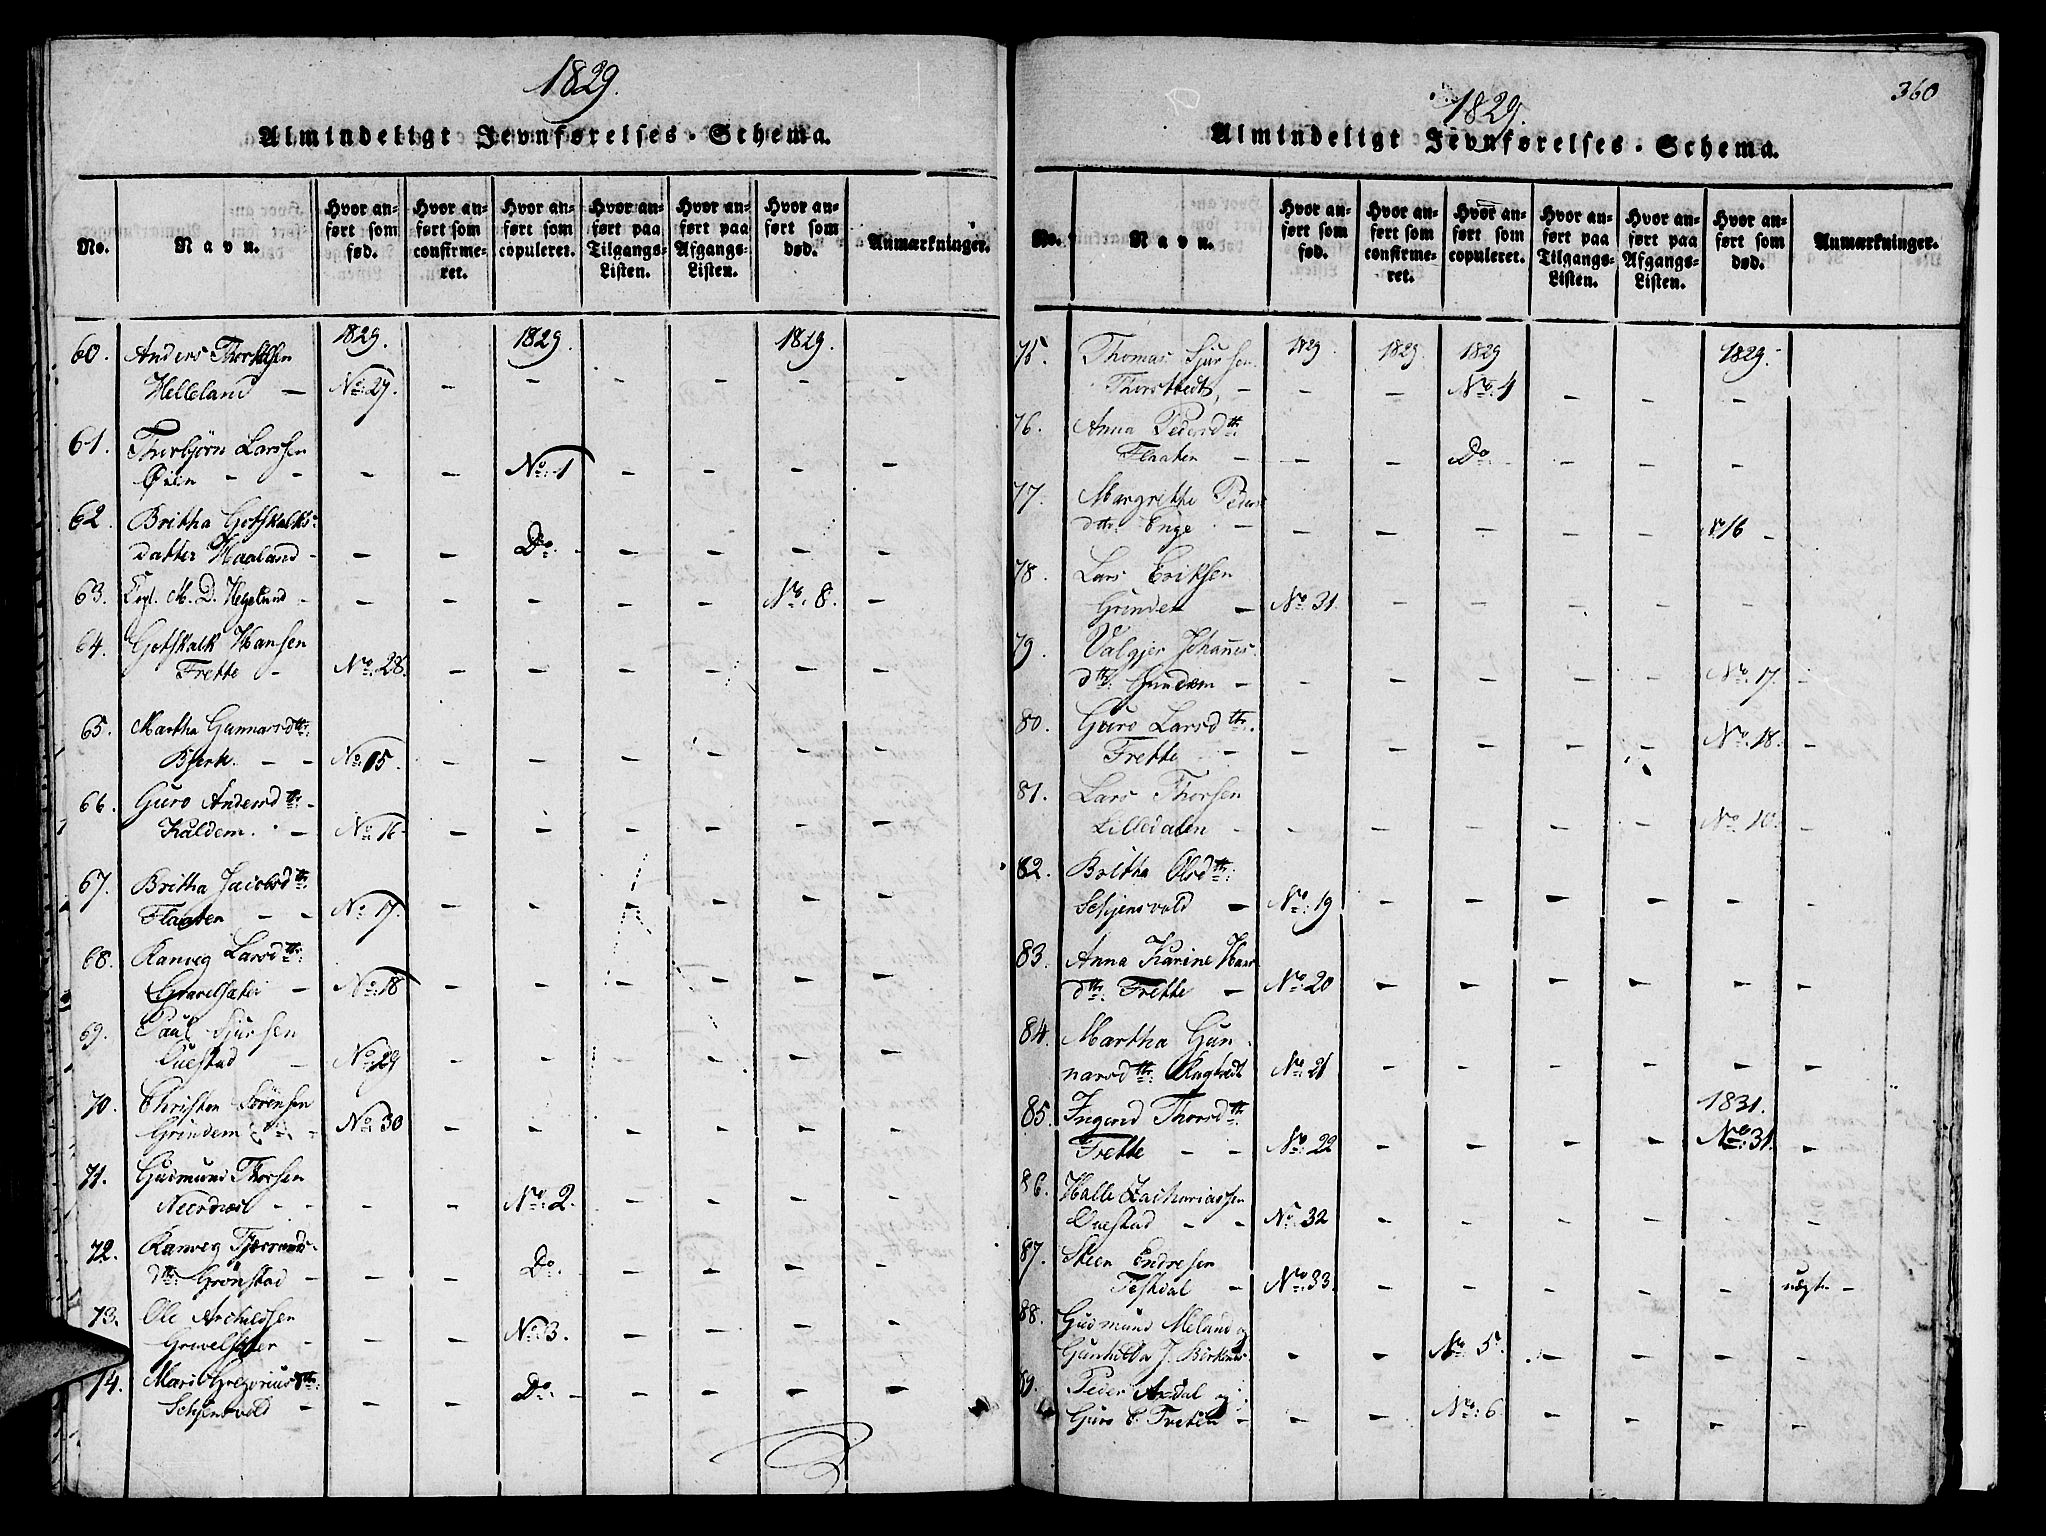 1829.
Almindeligt Jevnførelses-Schema.
No.
Navn.
Hvor anført som fød.
Hvor anført som confirmeret.
Hvor anført som copuleret.
Hvor anført paa Tilgangs-Listen.
Hvor anført paa Afgangs-Listen.
Hvor anført som død.
Anmærkninger.
1829. 1829. 1829.
60. Anders Thorkelsen
Helleland — No. 27. - - - - - -
61. Thorbjørn Larssen
Øien - - - - No. 1 - - - -
62. Britha Gotskalks-
datter Haaland - - - Do. - - - -
63. M. D. Hegelund - - - - - - No. 8. -
64. Gotskalk Hansen
Frette - No. 28. - - - - - -
65. Martha Gunnarsdtr.
Bjerk. - - No. 15. - - - - - -
66. Guro Andersdtr. -
Kaldem. - No. 16 - - - - - -
67. Britha Jacobsdtr.
Flaaten - - No. 17. - - - - - -
68. Ranveg Larsdtr.
Gravelsæter - No. 18 - - - - - -
69. Paul Sjursen
Ouestad - No. 29 - - - - - -
70. Christen Sørensen
Grindem - No. 30 - - - - - -
71. Gudmund Thorsen
- - - - No. 2. - - - -
72. Ranveg
dtr. Grønstad - - - Do. - - - -
73. Ole
Gravelsæter - - - No. 3. - - - -
74. Mari Gregoriusdtr.
Schjensvold - - - Do. - - - - -
360
1829.
Almindeligt Jevnførelses-Schema.
No.
Navn.
Hvor anført som fød.
Hvor anført som confirmeret.
Hvor anført som copuleret.
Hvor anført paa Tilgangs-Listen.
Hvor anført paa Afgangs-Listen.
Hvor anført som død.
Anmærkninger.
75. Thomas Sjursen 1829 1829 1829 1829.
- - - No. 4 - - -
76. Anna Pedersdtr.
Flaaten - - - Do. - - -
77. Margrithe Peders
dtr. Enge - - - - - - No. 16 -
78. Lars Eriksen
Grindem - No. 31. - - - - - -
79. Valgjer Johannes
dtr. Grindem - - - - - - No. 17. -
80. Guro Larsdtr.
Frette - - - - - - No. 18. -
81. Lars Thorsen
Lilledalen - - - - - - No. 10. -
82. Britha Olsdtr.
Schjensvold - No. 19 - - - - - -
83. Anna Karine
dtr. Frette - No. 20 - - - - - -
84. Martha Gun-
narsdtr. No. 21 - - - - - -
85. Ingerid Thorsdtr. 1831.
Frette - - No. 22 - - - - No. 31. -
86. Halle Zachariassen
Ouestad - - No. 32 - - - - - -
87. Steen Endresen
Teskdal - No. 33. - - - - -
88. Gudmund Meland og
Gunhilda J. - - No. 5. - - - -
89. Peder Axdal og
Guro - - - No. 6. - - - -